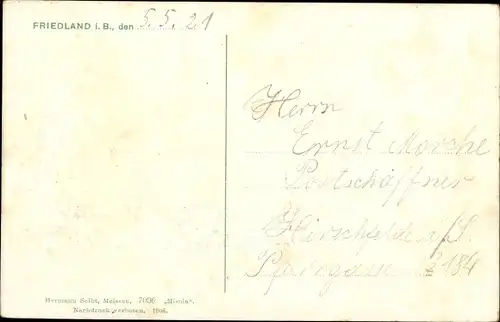 FRIEDLAND i. B., den 5.5.21
Herrn
Ernst Morche
Postschaffner
Hirschfelde i/S.
184
Hermann Seibt, Meissen, 7606 „Mimosa“.
Nachdruck verboten, 1908.